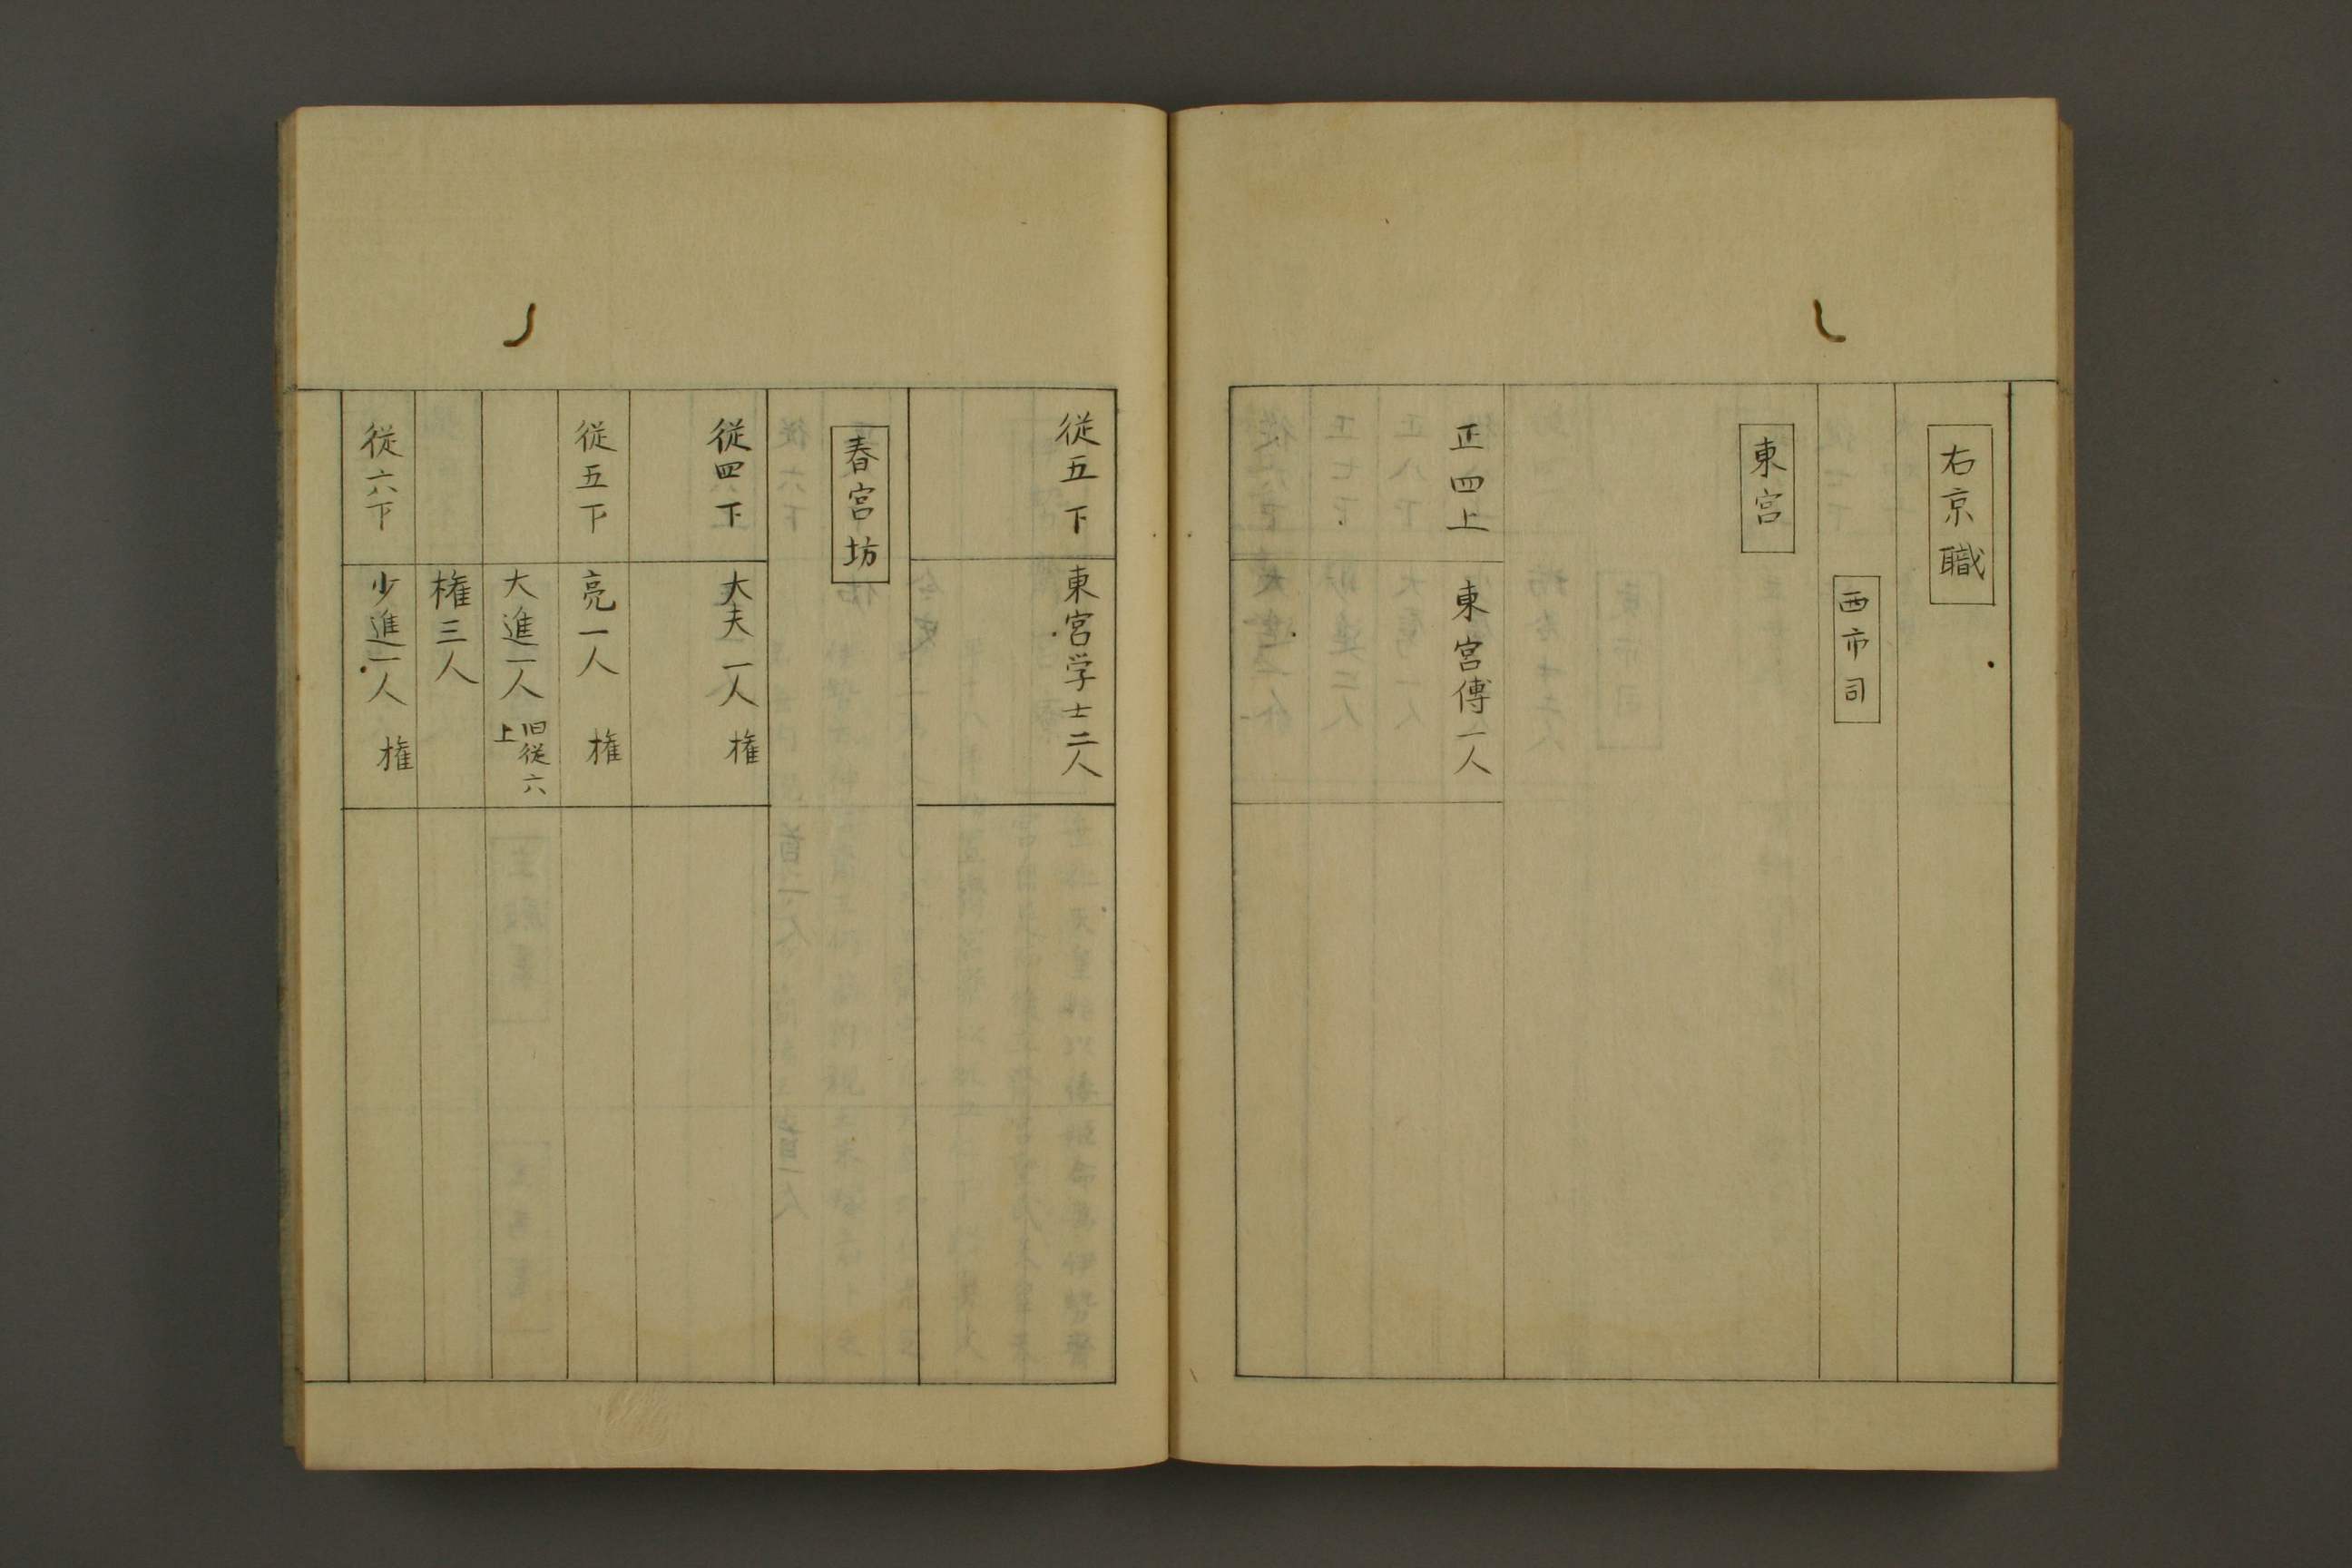 右京職
西市司
東宮
正四上 東宮傅一人
従五下 東宮学士二人
春宮坊
従四下 大夫一人 権
従五下 亮一人 権
大進一人 旧従六上
権三人
従六下 少進一人 権